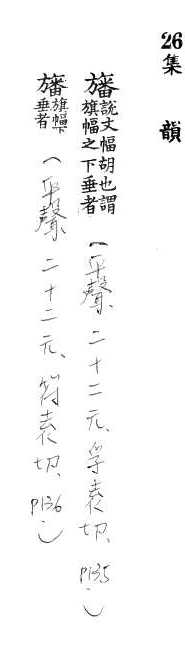 26集韻
旛說文幅胡也謂旗幅之下垂者(平聲、二十二元、孚袁切、P135)
旛旗幅下垂者(平聲、二十二元、符袁切、P136)